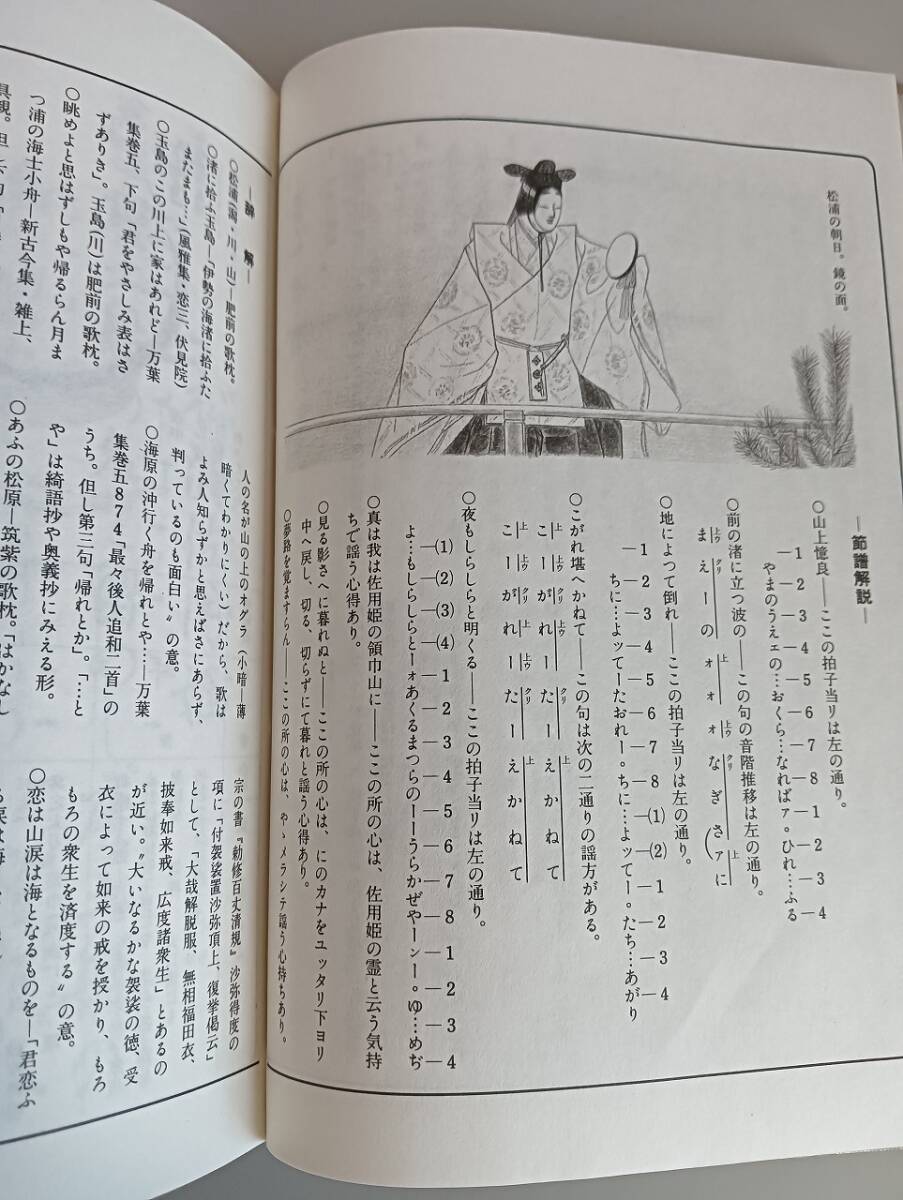 松浦の朝日。鏡の面。
―節譜解説―
○山上憶良――ここの拍子当りは左の通り。
1―2―3―4―5―6―7―8―1―2―3―4
やまのうえェの…おくら…なればァ。ひれ…ふる
○前の渚に立つ波の――この句の音階推移は左の通り。
上ウ クリ 上 上ウ クリ 上
まえーのォォォなぎさ(ァに
○地によつて倒れ――ここの拍子当りは左の通り。
1―2―3―4―5―6―7―8―(1)―(2)―1―2―3―4
ちに…よッてーたおれー。ちに…よッてー。たち…あがり
○こがれ堪へかねて――この句は次の二通りの謡方がある。
上 上ウ クリ 上ウ クリ 上
こーがれーたーえかねて
上 上ウ クリ 上ウ クリ 上
こーがれーたーえかねて
○夜もしらしらと明くる――ここの拍子当りは左の通り。
―(1)―(2)―(3)―(4)―1―2―3―4―5―6―7―8―1―2―3―4
よ…もしらしらとーォあくるまつらのーーうらかぜやーンー。ゆ…めぢ
○真は我は佐用姫の領巾山に――ここの所の心は、佐用姫の霊と云う気持
ちで謡う心得あり。
○見る影さへに暮れぬと――ここの所の心は、にのカナをユッタリ下ヨリ
中へ戻し、切る、切らずにて暮れと謡う心得あり。
○夢路を覚ますらん――ここの所の心は、やゝメラシテ謡う心持ちあり。
―辞解―
○松浦(潟・川・山)―肥前の歌枕。
○渚に拾ふ玉島―「伊勢の海渚に拾ふた
またまも…」(風雅集・恋三、伏見院)
○玉島のこの川上に家はあれど―万葉
集巻五、下句「君をやさしみ表はさ
ずありき」。玉島(川)は肥前の歌枕。
○眺めよと思はずしもや帰るらん月ま
つ浦の海士小舟―新古今集・雑上、
人の名が山の上のオグラ(小暗―薄
暗くてわかりにくい)だから、歌は
よみ人知らずかと思えばさにあらず、
判っているのも面白い〟の意。
○海原の沖行く舟を帰れとや……―万葉
集巻五874「最々後人追和二首」の
うち。但し第三句「帰れとか」。「…と
や」は綺語抄や奥義抄にみえる形。
○あふの松原―筑紫の歌枕。「はかなし
宗の書『勅修百丈清規』沙弥得度の
項に「付袈裟置沙弥頂上、復挙偈云」
として、「大哉解脱服、無相福田衣、
披奉如来戒、広度諸衆生」とあるの
が近い。〝大いなるかな袈裟の徳、受
衣によって如来の戒を授かり、もろ
もろの衆生を済度する〟の意。
○恋は山涙は海となるものを―「君恋ふ